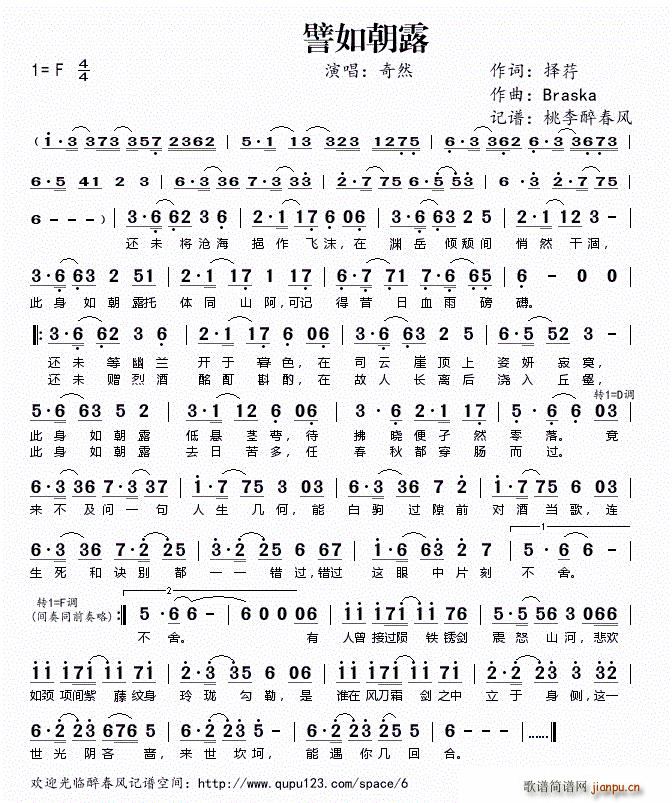 譬如朝露
1= F 4/4 演唱：奇然 作词：择荇
作曲：Braska
记谱：桃李醉春风
(i·3 373 357 2362 | 5·1 13 323 1275 | 6·3 362 6·3 3673 |
6·5 41 2 3 | 6·3 36 7·3 33 | 2·7 75 6·5 53 | 6·3 2·7 75 |
6 - - -) | 3·6 62 3 6 | 2·1 17 6 06 | 3·6 63 2 5 | 3 3 5 - |
还未 将沧海 挹作 飞沫，在 渊岳 倾颓间 悄然 干涸，
3·6 63 2 51 | 7·6 12 6 06 | 5·7 71 7·6 65 | 6 - 0 0 |
此身 如朝露托 体同 山阿，可记 得昔 日血雨 磅 礴。
3·6 62 3 6 | 2·1 17 6 06 | 3·6 63 2 3 | 6·5 52 3 - |
还未 等幽兰 开于 暮色，在 司云 崖顶上 姿妍 寂寞，
还未 赠烈酒 酩酊 斟酌，在 故人 长离后 浇入 丘壑，
转1=D调
5·6 63 5 2 | 3·1 12 6 06 | 3·6 2 1 7 | 5·6 6 03 |
此身 如朝露 低悬 茎弯，待 拂晓便孑然 零落。竟
此身 如朝露 去日 苦多，任 春秋都穿肠 而过。
6·3 36 7·3 37 | i·7 75 3 03 | 6·3 36 7 2 | i·7 75 3 03 |
来不 及问 一句 人生 几何，能 白驹 过隙前 对酒 当歌，连
1
6·3 36 7·2 25 | 3·2 25 3 35 | 6·2 63 2 2 | 5·2 3 - |
生死 和诀 别都 一一 错过，错过 这眼 中片刻 不 舍。
转1=F调
(间奏同前奏略)
2
5·6 6 - | 6 0 0 06 | 11 171 1 76 | 56 52 3 066 |
不舍。 有 人曾 接过陨 铁 锈剑 震怒 山河，悲欢
11 171 1 71 | 2 3 6 6 | 11 171 1 71 | 2 3 3 35 |
如颈 项间紫 藤纹身 玲珑 勾勒，是 谁在 风刀霜 剑之中 立于 身侧，这一
6·2 23 676 5 | 6·2 23 5 5 | 6·2 23 2 5 | 6 - - - | ......
世光 阴吝 啬，来世 坎坷，能遇 你几 回 合。
欢迎光临醉春风记谱空间：http://www.qupu123.com/space/6
歌谱简谱网 jianpu.cn